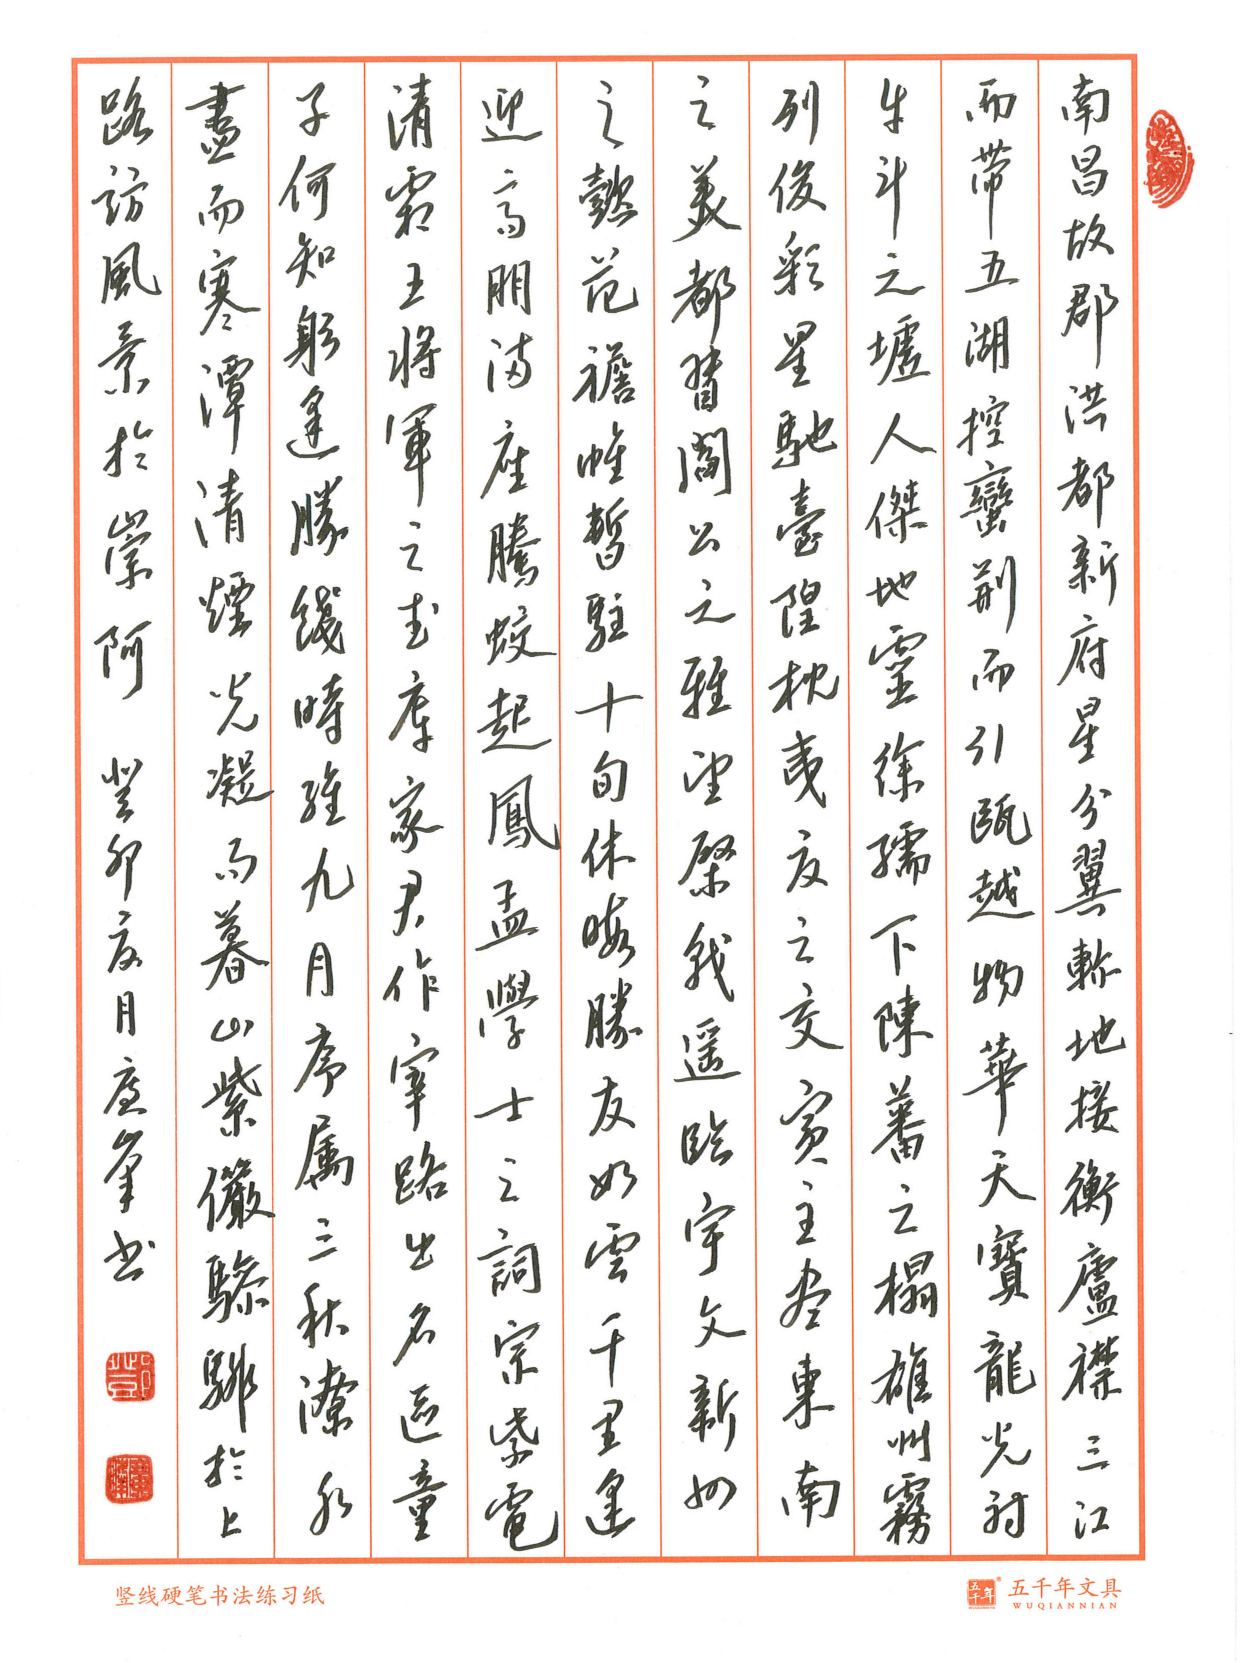 南昌故郡洪都新府星分翼軫地接衡廬襟三江
而帶五湖控蠻荊而引甌越物華天寶龍光射
牛斗之墟人傑地靈徐孺下陳蕃之榻雄州霧
列俊彩星馳臺隍枕夷夏之交賓主盡東南
之美都督閻公之雅望棨戟遙臨宇文新州
之懿范襜帷暫駐十旬休暇勝友如雲千里逢
迎高朋滿座騰蛟起鳳孟學士之詞宗紫電
清霜王將軍之武庫家君作宰路出名區童
子何知躬逢勝餞時維九月序屬三秋潦水
盡而寒潭清煙光凝而暮山紫儼驂騑於上
路訪風景於崇阿 癸卯夏月慶峯書
竖线硬笔书法练习纸
五千年
五千年文具
WUQIANNIAN